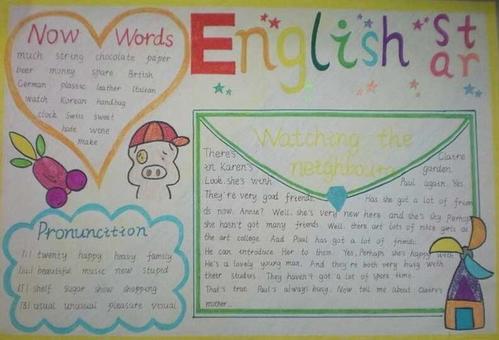 English star
Now Words
much string chocolate paper
beer money spare British
German plastic leather Italian
watch Korean handbag
clock Swiss sweet
hate wine
make
Pronunciition
twenty happy heavy family
beautiful music new stuped
shelf sugar show shopping
usual unusual pleasure visual
Watching the
neighbours
There's Claire
in Karen's garden.
Look. she's with Paul again. Yes.
They're very good friends. Has she got a lot of frien
ds now. Anne? Well. she's very new here and she's shy. Perhaps
she hasn't got many friends. Well. there are lots of nice girls at
the art college. And Paul has got a lot of friends.
He can introduce Her to them. Yes. Perhaps she's happy with
He's a lovely young man. And they're both very busy with
their studies. They haven't got a lot of spare time.
That's true. Paul's always busy. Now tell me about Claire's
mother...